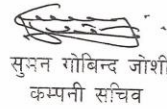 सुमन गोबिन्द जोशी
कम्पनी सचिव